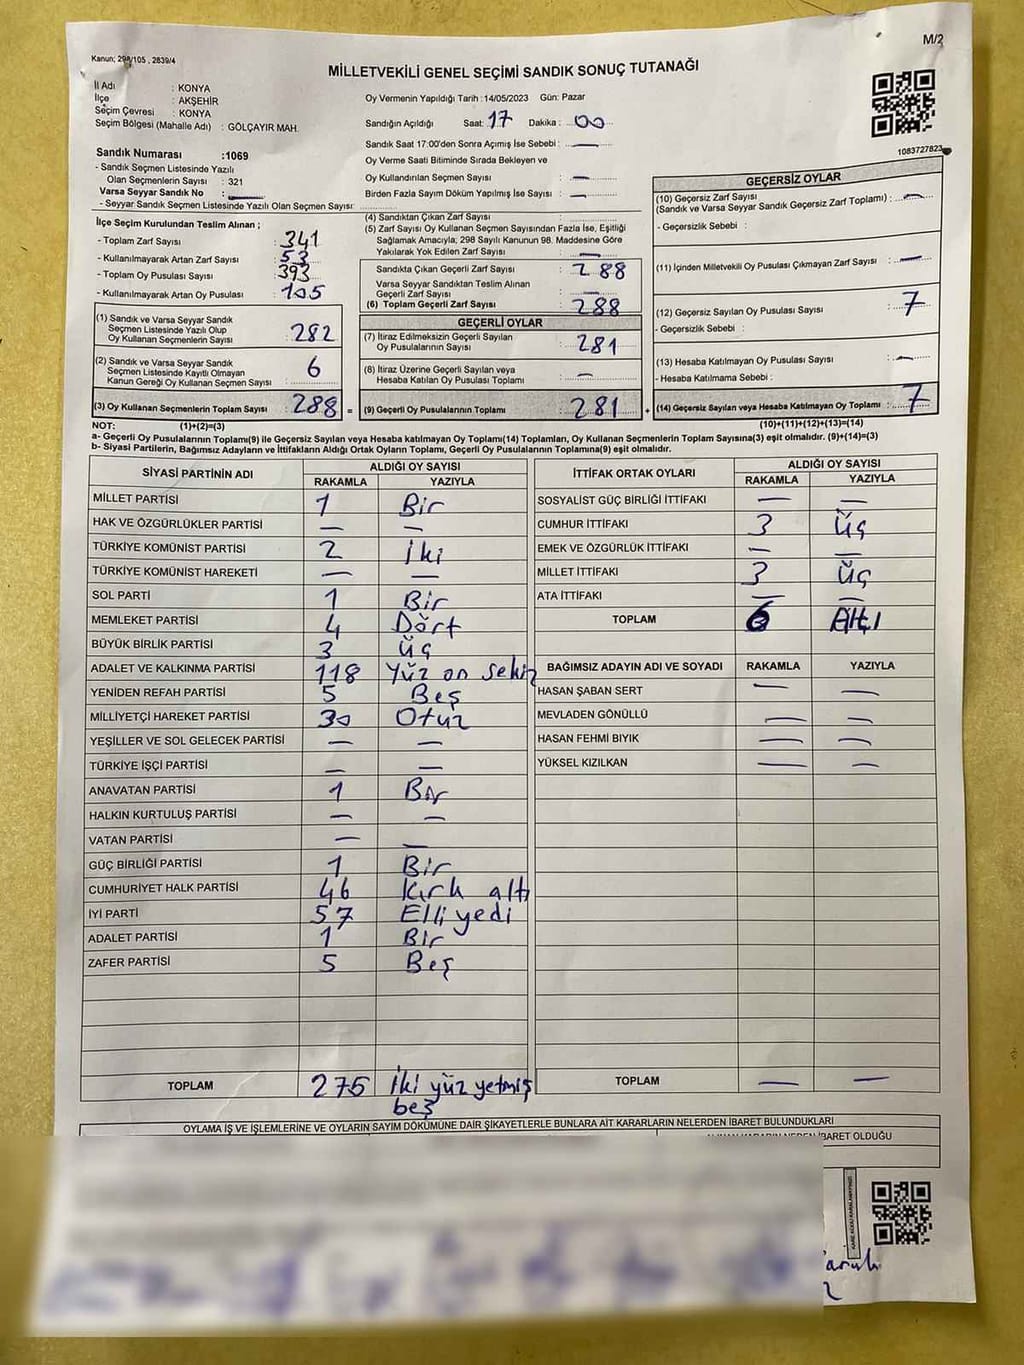 Kanun; 298/105 , 2839/4
M/2
MİLLETVEKİLİ GENEL SEÇİMİ SANDIK SONUÇ TUTANAĞI
İl Adı : KONYA
İlçe : AKŞEHİR
Seçim Çevresi : KONYA
Seçim Bölgesi (Mahalle Adı) : GÖLÇAYIR MAH.
Oy Vermenin Yapıldığı Tarih :14/05/2023 Gün: Pazar
Sandığın Açıldığı Saat: 17 Dakika : 00
Sandık Saat 17:00'den Sonra Açılmış İse Sebebi : —
Oy Verme Saati Bitiminde Sırada Bekleyen ve
Oy Kullandırılan Seçmen Sayısı : —
Birden Fazla Sayım Döküm Yapılmış İse Sayısı : —
1083727823
Sandık Numarası :1069
- Sandık Seçmen Listesinde Yazılı
Olan Seçmenlerin Sayısı : 321
Varsa Seyyar Sandık No : —
- Seyyar Sandık Seçmen Listesinde Yazılı Olan Seçmen Sayısı:
İlçe Seçim Kurulundan Teslim Alınan ;
- Toplam Zarf Sayısı : 341
- Kullanılmayarak Artan Zarf Sayısı : 53
- Toplam Oy Pusulası Sayısı : 393
- Kullanılmayarak Artan Oy Pusulası : 105
(1) Sandık ve Varsa Seyyar Sandık
Seçmen Listesinde Yazılı Olup
Oy Kullanan Seçmenlerin Sayısı : 282
(2) Sandık ve Varsa Seyyar Sandık
Seçmen Listesinde Kayıtlı Olmayan
Kanun Gereği Oy Kullanan Seçmen Sayısı : 6
(3) Oy Kullanan Seçmenlerin Toplam Sayısı : 288 =
(4) Sandıktan Çıkan Zarf Sayısı :
(5) Zarf Sayısı Oy Kullanan Seçmen Sayısından Fazla İse, Eşitliği
Sağlamak Amacıyla; 298 Sayılı Kanunun 98. Maddesine Göre
Yakılarak Yok Edilen Zarf Sayısı : —
Sandıkta Çıkan Geçerli Zarf Sayısı : 288
Varsa Seyyar Sandıktan Teslim Alınan
Geçerli Zarf Sayısı : —
(6) Toplam Geçerli Zarf Sayısı : 288
GEÇERLİ OYLAR
(7) İtiraz Edilmeksizin Geçerli Sayılan
Oy Pusulalarının Sayısı : 281
(8) İtiraz Üzerine Geçerli Sayılan veya
Hesaba Katılan Oy Pusulası Toplamı : —
(9) Geçerli Oy Pusulalarının Toplamı : 281 +
GEÇERSİZ OYLAR
(10) Geçersiz Zarf Sayısı
(Sandık ve Varsa Seyyar Sandık Geçersiz Zarf Toplamı) : —
- Geçersizlik Sebebi :
(11) İçinden Milletvekili Oy Pusulası Çıkmayan Zarf Sayısı : —
(12) Geçersiz Sayılan Oy Pusulası Sayısı : 7
- Geçersizlik Sebebi :
(13) Hesaba Katılmayan Oy Pusulası Sayısı : —
- Hesaba Katılmama Sebebi :
(14) Geçersiz Sayılan veya Hesaba Katılmayan Oy Toplamı : 7
NOT: (1)+(2)=(3) (10)+(11)+(12)+(13)=(14)
a- Geçerli Oy Pusulalarının Toplamı(9) ile Geçersiz Sayılan veya Hesaba katılmayan Oy Toplamı(14) Toplamları, Oy Kullanan Seçmenlerin Toplam Sayısına(3) eşit olmalıdır. (9)+(14)=(3)
b- Siyasi Partilerin, Bağımsız Adayların ve İttifakların Aldığı Ortak Oyların Toplamı, Geçerli Oy Pusulalarının Toplamına(9) eşit olmalıdır.
SİYASİ PARTİNİN ADI ALDIĞI OY SAYISI
RAKAMLA YAZIYLA
MİLLET PARTİSİ 1 Bir
HAK VE ÖZGÜRLÜKLER PARTİSİ — —
TÜRKİYE KOMÜNİST PARTİSİ 2 İki
TÜRKİYE KOMÜNİST HAREKETİ — —
SOL PARTİ 1 Bir
MEMLEKET PARTİSİ 4 Dört
BÜYÜK BİRLİK PARTİSİ 3 Üç
ADALET VE KALKINMA PARTİSİ 118 Yüz on sekiz
YENİDEN REFAH PARTİSİ 5 Beş
MİLLİYETÇİ HAREKET PARTİSİ 30 Otuz
YEŞİLLER VE SOL GELECEK PARTİSİ — —
TÜRKİYE İŞÇİ PARTİSİ — —
ANAVATAN PARTİSİ 1 Bir
HALKIN KURTULUŞ PARTİSİ — —
VATAN PARTİSİ — —
GÜÇ BİRLİĞİ PARTİSİ 1 Bir
CUMHURİYET HALK PARTİSİ 46 Kırk altı
İYİ PARTİ 57 Elli yedi
ADALET PARTİSİ 1 Bir
ZAFER PARTİSİ 5 Beş
TOPLAM 275 İki yüz yetmiş
beş
İTTİFAK ORTAK OYLARI ALDIĞI OY SAYISI
RAKAMLA YAZIYLA
SOSYALİST GÜÇ BİRLİĞİ İTTİFAKI — —
CUMHUR İTTİFAKI 3 Üç
EMEK VE ÖZGÜRLÜK İTTİFAKI — —
MİLLET İTTİFAKI 3 Üç
ATA İTTİFAKI — —
TOPLAM 6 Altı
BAĞIMSIZ ADAYIN ADI VE SOYADI RAKAMLA YAZIYLA
HASAN ŞABAN SERT — —
MEVLADEN GÖNÜLLÜ — —
HASAN FEHMİ BIYIK — —
YÜKSEL KIZILKAN — —
TOPLAM — —
OYLAMA İŞ VE İŞLEMLERİNE VE OYLARIN SAYIM DÖKÜMÜNE DAİR ŞİKAYETLERLE BUNLARA AİT KARARLARIN NELERDEN İBARET BULUNDUKLARI
ALINAN KARARIN NEDEN İBARET OLDUĞU